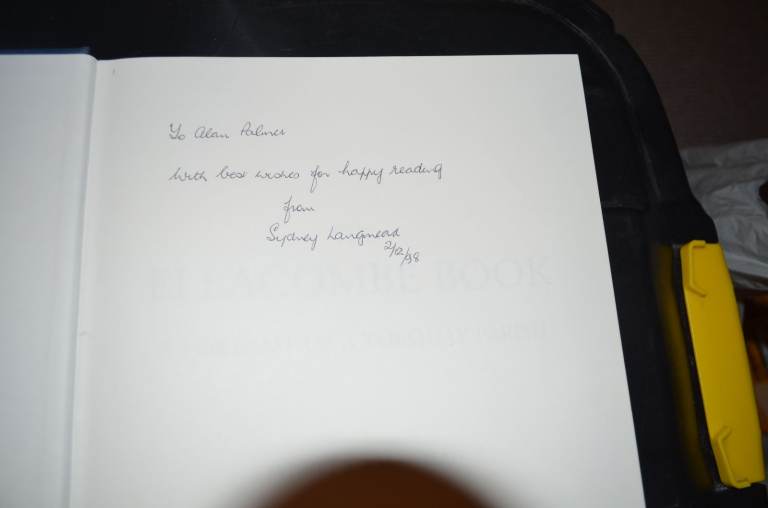 To Alan Palmer
With best wishes for happy reading
from
Sydney Langmead
2/12/98
ELLACOMBE BOOK